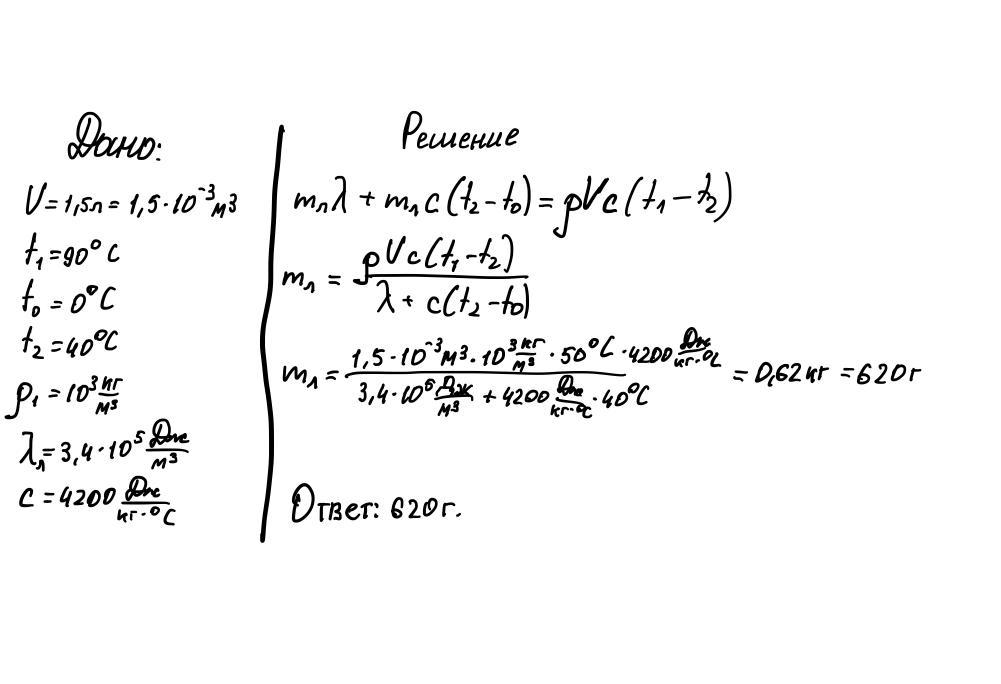 Дано:
V = 1,5л = 1,5·10⁻³м³
t₁ = 90°C
t₀ = 0°C
t₂ = 40°C
ρ₁ = 10³ кг/м³
λл = 3,4·10⁵ Дж/м³
c = 4200 Дж/кг·°C
Решение
mлλ + mлc(t₂ - t₀) = ρVc(t₁ - t₂)
mл = ρVc(t₁ - t₂) / λ + c(t₂ - t₀)
mл = 1,5·10⁻³м³·10³ кг/м³ · 50°C · 4200 Дж/кг·°C / 3,4·10⁶ Дж/м³ + 4200 Дж/кг·°C · 40°C = 0,62кг = 620г
Ответ: 620г.